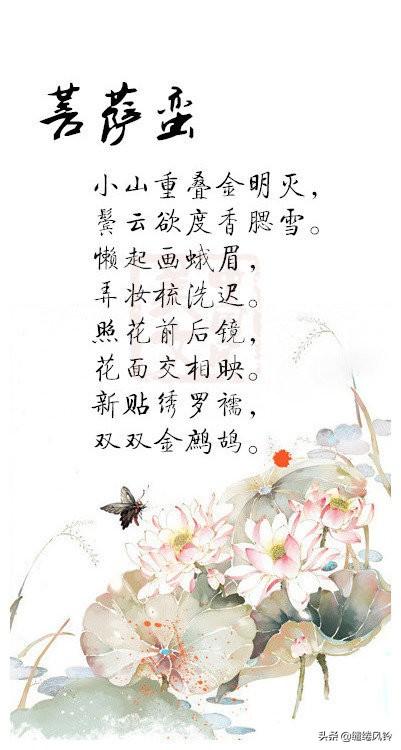 菩萨蛮
小山重叠金明灭，
鬓云欲度香腮雪。
懒起画蛾眉，
弄妆梳洗迟。
照花前后镜，
花面交相映。
新贴绣罗襦，
双双金鹧鸪。
头条@缠绕风铃